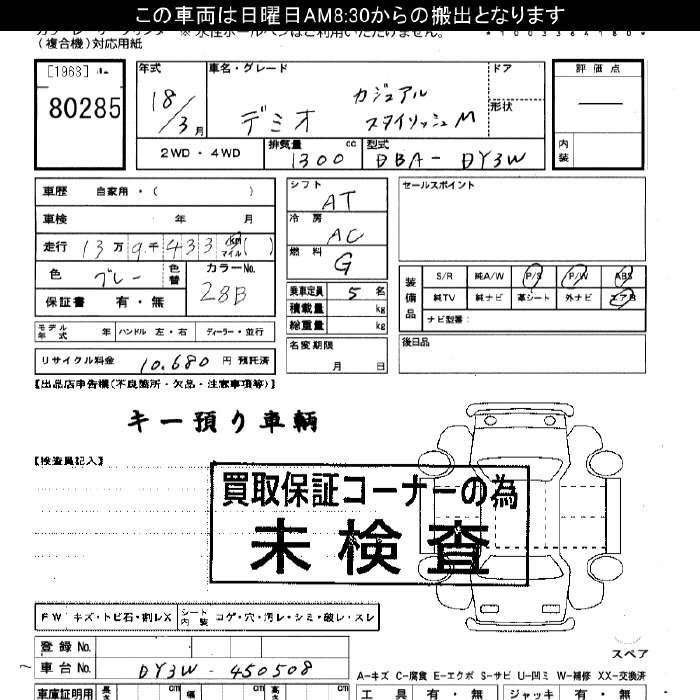 この車両は日曜日AM8:30からの搬出となります
(複合機)対応用紙
[1963]
80285
年式
18/3月
車名・グレード
デミオ
カジュアル
スタイリッシュM
ドア
形状
評価点
内装
2WD・4WD
排気量 1300 cc
型式 DBA-DY3W
車歴 自家用・( )
車検 年 月
走行 13万9千433 km マイル ( )
色 グレー
色替
カラーNo. 28B
保証書 有・無
シフト AT
冷房 AC
燃料 G
乗車定員 5 名
積載量 kg
総重量 kg
セールスポイント
装備品
S/R 純A/W P/S P/W ABS
純TV 純ナビ 革シート 外ナビ エアB
ナビ型番:
モデル年式 年 ハンドル 左・右 ディーラー・並行
リサイクル料金 10,680 円 預託済
名変期限
月 日
後日品
【出品店申告欄(不良箇所・欠品・注意事項等)】
キー預り車輌
【検査員記入】
買取保証コーナーの為
未検査
FW キズ・トビ石・割レX シート内装 コゲ・穴・汚レ・シミ・破レ・スレ
登録No.
車台No. DY3W-450508
スペア
A-キズ C-腐食 E-エクボ S-サビ U-凹ミ W-補修 XX-交換済
車庫証明用 長さ cm 幅 cm cm
工具 有・無 ジャッキ 有・無